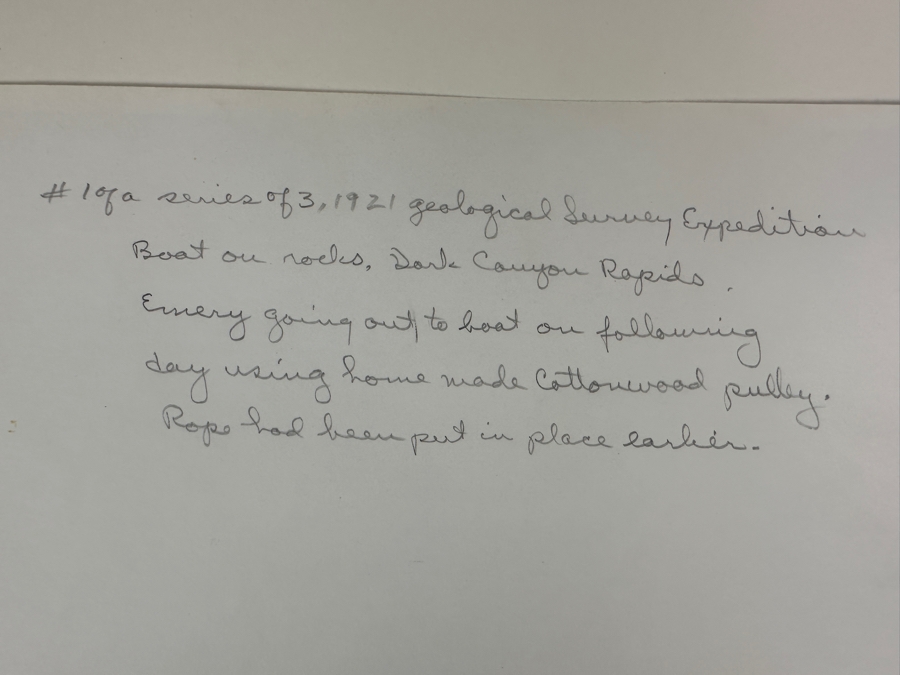 # 1 of a series of 3, 1921 geological Survey Expedition
Boat on rocks, Dark Canyon Rapids.
Emery going out to boat on following
day using home made Cottonwood pulley.
Rope had been put in place earlier.